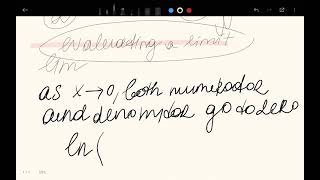 evaluating a limit
lim
as x→0, both numerador
and denomidor go to zero
ln(